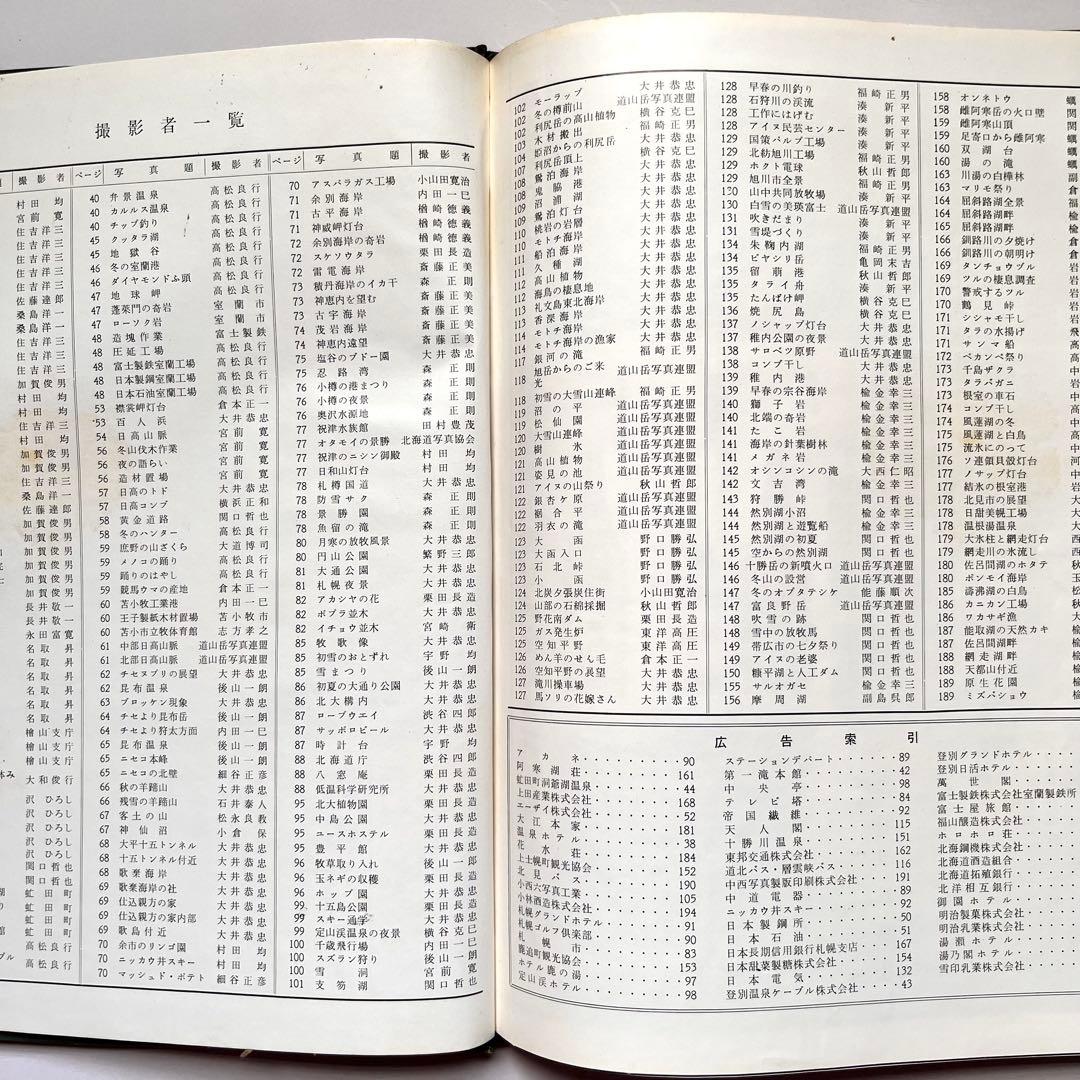 撮影者一覧
撮影者
村田均
宮前寛
住吉洋三
住吉洋三
住吉洋三
住吉洋三
佐藤達郎
桑島洋一
桑島洋一
住吉洋三
住吉洋三
住吉洋三
加賀俊男
村田均
村田均
住吉洋三
村田均
加賀俊男
加賀俊男
住吉洋三
桑島洋一
佐藤達郎
加賀俊男
加賀俊男
加賀俊男
加賀俊男
加賀俊男
長井敬一
永田富寛
名取昇
名取昇
名取昇
名取昇
名取昇
檜山支庁
檜山支庁
大和俊行
沢ひろし
沢ひろし
沢ひろし
沢ひろし
関口哲也
関口哲也
虻田町
虻田町
高松良行
高松良行
ページ 写真題 撮影者
40 弁景温泉 高松良行
40 カルルス温泉 高松良行
40 チップ釣り 高松良行
45 クッタラ湖 高松良行
45 地獄谷 高松良行
46 冬の室蘭港 高松良行
46 ダイヤモンドふ頭 高松良行
47 地球岬 高松良行
47 蓬萊門の奇岩 室蘭市
47 ローソク岩 室蘭市
48 造塊作業 富士製鉄
48 圧延工場 高松良行
48 富士製鉄室蘭工場 高松良行
48 日本製鋼室蘭工場 高松良行
48 日本石油室蘭工場 高松良行
53 襟裳岬灯台 倉本正一
53 百人浜 大井恭忠
54 日高山脈 宮前寛
56 冬山伐木作業 宮前寛
56 夜の語らい 宮前寛
56 造材置場 宮前寛
57 日高のトド 大井恭忠
57 日高コンブ 横浜正和
58 黄金道路 関口哲也
58 冬のハンター 高松良行
59 庶野の山ざくら 大道博司
59 メノコの踊り 高松良行
59 踊りのはやし 高松良行
59 競馬ウマの産地 倉本正一
60 苫小牧工業港 内田一巳
60 王子製紙木材置場 苫小牧市
60 苫小市立牧体育館 志方孝之
61 中部日高山脈 道山岳写真連盟
61 北部日高山脈 道山岳写真連盟
62 チセヌプリの展望 大井恭忠
62 昆布温泉 後山一朗
63 ブロッケン現象 大井恭忠
64 チセより昆布岳 後山一朗
64 チセより狩太方面 内田一巳
65 昆布温泉 後山一朗
65 ニセコ本峰 後山一郎
65 ニセコの北壁 細谷正彦
66 秋の羊蹄山 大井恭忠
66 残雪の羊蹄山 石井泰人
67 客土の山 松永良教
67 神仙沼 小倉保
68 大平十五トンネル 大井恭忠
68 十五トンネル付近 大井恭忠
68 歌棄海岸 大井恭忠
69 歌棄海岸の社 大井恭忠
69 仕込親方の家 大井恭忠
69 仕込親方の家内部 大井恭忠
69 歌島付近 大井恭忠
70 余市のリンゴ園 村田均
70 ニッカウ井スキー 村田均
70 マッシュド・ポテト 細谷正彦
ページ 写真題 撮影者
70 アスパラガス工場 小山田寛治
71 余別海岸 内田一巳
71 古平海岸 楢崎徳義
71 神威岬灯台 楢崎徳義
72 余別海岸の奇岩 楢崎徳義
72 スケソウタラ 栗田長造
72 雷電海岸 斎藤正美
73 積丹海岸のイカ干 森正則
73 神恵内を望む 斎藤正美
73 古宇海岸 斎藤正美
74 茂岩海岸 斎藤正美
74 神恵内遠望 斎藤正美
75 塩谷のブドー園 大井恭忠
75 忍路湾 森正則
76 小樽の港まつり 森正則
76 小樽の夜景 森正則
76 奥沢水源地 森正則
76 祝津水族館 田村豊茂
77 オタモイの景勝 北海道写真協会
77 祝津のニシン御殿 村田均
77 日和山灯台 村田均
78 札樽国道 大井恭忠
78 防雪サク 森正則
78 景勝園 森正則
78 魚留の滝 森正則
80 月寒の放牧風景 大井恭忠
80 円山公園 繁野三郎
81 大通公園 大井恭忠
81 札幌夜景 大井恭忠
82 アカシヤの花 栗田長造
82 ポプラ並木 大井恭忠
82 イチョウ並木 宮崎衛
85 牧歌像 大井恭忠
85 初雪のおとずれ 宇野均
85 雪まつり 後山一朗
86 初夏の大通り公園 大井恭忠
86 北大構内 大井恭忠
87 ロープウエイ 渋谷四郎
87 サッポロビール 大井恭忠
87 時計台 宇野均
88 北海道庁 渋谷四郎
88 八窓庵 栗田長造
88 低温科学研究所 大井恭忠
95 北大植物園 栗田長造
95 中島公園 大井恭忠
95 ユースホステル 栗田長造
95 豊平館 大井恭忠
96 牧草取り入れ 後山一郎
96 玉ネギの収穫 栗田長造
96 ホップ園 大井恭忠
99 十五島公園 栗田長造
99 スキー通学 大井恭忠
99 定山渓温泉の夜景 横谷克巳
100 千歳飛行場 内田一巳
100 スズラン狩り 後山一朗
100 雪洞 宮前寛
101 支笏湖 関口哲也
102 モーラップ 大井恭忠
102 冬の樽前山 道山岳写真連盟
102 利尻岳の高山植物 横谷克巳
103 木材搬出 福崎正男
104 姫沼からの利尻岳 大井恭忠
107 利尻岳頂上 横谷克巳
108 鴛泊海岸 大井恭忠
108 鬼脇港 大井恭忠
109 沼浦湖 大井恭忠
109 鴛泊灯台 大井恭忠
109 桃岩の岩層 大井恭忠
110 モトチ海岸 大井恭忠
111 船泊海岸 大井恭忠
111 久種湖 大井恭忠
112 高山植物 大井恭忠
112 海鳥の棲息地 大井恭忠
113 礼文島東北海岸 大井恭忠
113 香深海岸 大井恭忠
114 モトチ海岸 大井恭忠
114 モトチ海岸の漁家 大井恭忠
117 銀河の滝 福崎正男
118 旭岳からのご来光 道山岳写真連盟
118 初雪の大雪山連峰 福崎正男
119 沼の平 道山岳写真連盟
119 松仙園 道山岳写真連盟
120 大雪山連峰 道山岳写真連盟
120 樹氷 道山岳写真連盟
121 高山植物 道山岳写真連盟
121 姿見の池 道山岳写真連盟
121 アイヌの山祭り 秋山哲郎
122 銀杏ケ原 道山岳写真連盟
122 裾合平 道山岳写真連盟
122 羽衣の滝 道山岳写真連盟
123 大函 野口勝弘
123 大函入口 野口勝弘
123 石北峠 野口勝弘
123 小函 野口勝弘
124 北炭夕張炭住街 小山田寛治
124 山部の石綿採掘 秋山哲郎
125 野花南ダム 栗田長造
125 ガス発生炉 東洋高圧
125 空知平野 東洋高圧
126 めん羊のせん毛 倉本正一
126 空知平野の展望 大井恭忠
127 滝川操車場 大井恭忠
127 馬ソリの花嫁さん 大井恭忠
128 早春の川釣り 福崎正男
128 石狩川の渓流 湊新平
128 工作にはげむ 湊新平
128 アイヌ民芸センター 湊新平
129 国策パルプ工場 湊新平
129 北紡旭川工場 湊新平
129 ホクト電球 福崎正男
129 旭川市全景 秋山哲郎
130 山中共同放牧場 福崎正男
130 白雪の美瑛富士 道山岳写真連盟
131 吹きだまり 湊新平
131 雪堤づくり 湊新平
134 朱鞠内湖 福崎正男
134 ピヤシリ岳 亀岡末吉
135 留萌港 秋山哲郎
135 タライ舟 湊新平
135 たんばけ岬 横谷克巳
136 焼尻島 横谷克巳
137 ノシャップ灯台 大井恭忠
137 稚内公園の夜景 大井恭忠
138 サロベツ原野 道山岳写真連盟
138 コンブ干し 大井恭忠
139 稚内港 大井恭忠
139 早春の宗谷海岸 楡金幸三
140 獅子岩 楡金幸三
140 北端の奇岩 楡金幸三
141 たこ岩 楡金幸三
141 海岸の針葉樹林 楡金幸三
141 メガネ岩 楡金幸三
142 オシンコシンの滝 大西仁昭
142 文吉湾 楡金幸三
143 狩勝峠 関口哲也
144 然別湖沼 楡金幸三
144 然別湖と遊覧船 楡金幸三
145 然別湖の初夏 関口哲也
145 空からの然別湖 関口哲也
146 十勝岳の新噴火口 道山岳写真連盟
146 冬山の設営 道山岳写真連盟
147 冬のオプタテシケ 能藤順次
147 富良野岳 道山岳写真連盟
148 吹雪の跡 関口哲也
148 雪中の放牧馬 関口哲也
149 帯広市の七夕祭り 関口哲也
149 アイヌの老婆 関口哲也
150 糠平湖と人工ダム 関口哲也
155 サルオガセ 楡金幸三
156 摩周湖 副島呉郎
158 オンネトウ
158 雌阿寒岳の火口壁
159 雌阿寒山頂
159 足寄口から雌阿寒
160 双湖台
160 湯の滝
163 川湯の白樺林
163 マリモ祭り
164 屈斜路湖全景
164 屈斜路湖畔
165 屈斜路湖畔
166 釧路川の夕焼け
166 釧路川の朝明け
169 タンチョウヅル
169 ツルの棲息調査
170 警戒するツル
170 鶴見峠
171 シシャモ干し
171 タラの水揚げ
171 サンマ船
172 ペカンベ祭り
173 千島ザクラ
173 タラバガニ
173 根室の車石
174 コンブ干し
174 風蓮湖の冬
175 風蓮湖と白鳥
175 流氷にのって
176 ソ連領貝殻灯台
177 ノサップ灯台
177 結氷の根室港
178 北見市の展望
178 日甜美幌工場
178 温根湯温泉
179 大氷柱と網走灯台
179 網走川の氷流し
180 佐呂間湖のホタテ
180 ポンモイ海岸
185 濤沸湖の白鳥
186 カニカン工場
186 ワカサギ漁
187 能取湖の天然カキ
187 佐呂間湖畔
188 網走湖畔
188 天都山付近
189 原生花園
189 ミズバショウ
広告索引
アカネ 90
阿寒湖荘 161
虻田町洞爺湖温泉 44
上田産業株式会社 168
エーザイ株式会社 52
大江本家 181
温泉ホテル 38
花水荘 184
上士幌町観光協会 152
北見バス 190
小西六写真工業 105
小林酒造株式会社 194
札幌グランドホテル 91
札幌ゴルフ倶楽部 90
札幌市 83
鹿追町観光協会 153
ホテル鹿の湯 97
定山渓ホテル 98
ステーションデパート 89
第一滝本館 42
中央亭 98
テレビ塔 84
帝国繊維 92
天人閣 115
十勝川温泉 151
東邦交通株式会社 162
道北バス・層雲峡 116
中西写真製版印刷株式会社 191
中道電器 89
ニッカウ井スキー 92
日本製鋼所 50
日本石油 51
日本長期信用銀行札幌支店 167
日本甜菜製糖株式会社 154
日本電気 132
登別温泉ケーブル株式会社 43
登別グランドホテル
登別日活ホテル
萬世閣
富士製鉄株式会社室蘭製鉄所
富士屋旅館
福山醸造株式会社
ホロホロ荘
北海鋼機株式会社
北海道酒造組合
北海道拓殖銀行
北洋相互銀行
御園ホテル
明治製菓株式会社
明治乳業株式会社
湯瀬ホテル
湯乃閣ホテル
雪印乳業株式会社